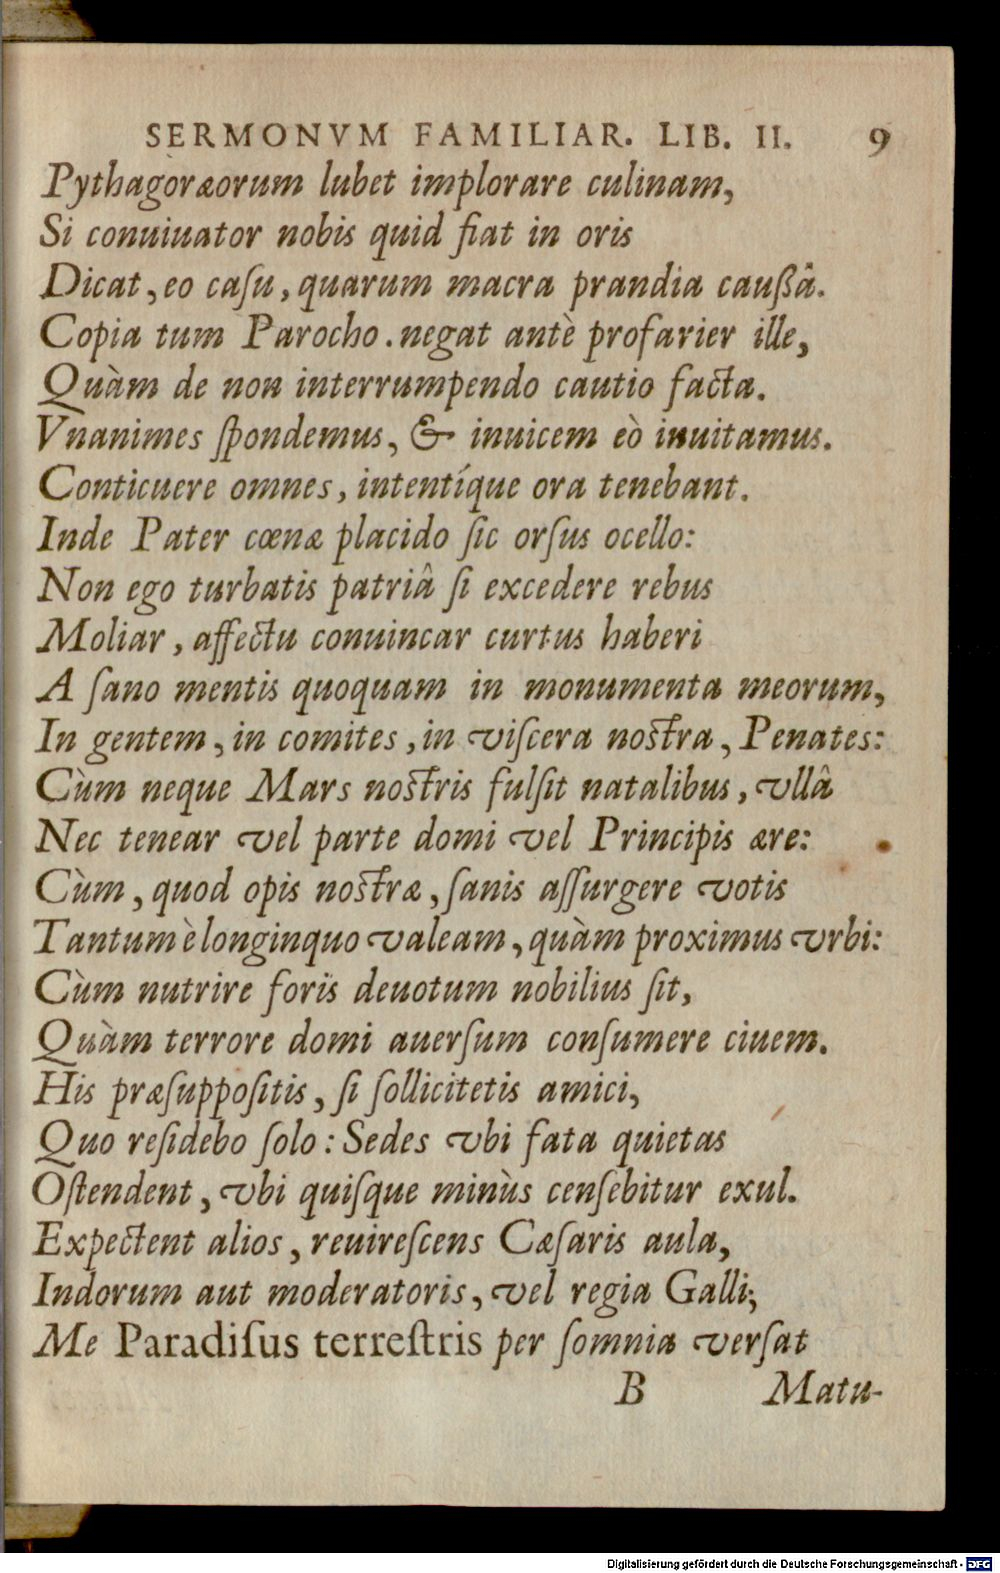 SERMONVM FAMILIAR. LIB. II. 9
Pythagoræorum lubet implorare culinam,
Si conuiuator nobis quid fiat in oris
Dicat, eo caſu, quarum macra prandia caußâ.
Copia tum Parocho. negat antè profarier ille,
Quàm de non interrumpendo cautio facta.
Vnanimes ſpondemus, & inuicem eò inuitamus.
Conticuere omnes, intentíque ora tenebant.
Inde Pater cœnæ placido ſic orſus ocello:
Non ego turbatis patriâ ſi excedere rebus
Moliar, affectu conuincar curtus haberi
A ſano mentis quoquam in monumenta meorum,
In gentem, in comites, in viſcera noſtra, Penates:
Cùm neque Mars noſtris fulſit natalibus, vllâ
Nec tenear vel parte domi vel Principis ære:
Cùm, quod opis noſtræ, ſanis aſſurgere votis
Tantum è longinquo valeam, quàm proximus vrbi:
Cùm nutrire foris deuotum nobilius ſit,
Quàm terrore domi auerſum conſumere ciuem.
His præſuppoſitis, ſi ſollicitetis amici,
Quo reſidebo ſolo: Sedes vbi fata quietas
Oſtendent, vbi quiſque minùs cenſebitur exul.
Expectent alios, reuireſcens Cæſaris aula,
Indorum aut moderatoris, vel regia Galli;
Me Paradiſus terreſtris per ſomnia verſat
B Matu-
Digitalisierung gefördert durch die Deutsche Forschungsgemeinschaft - DFG